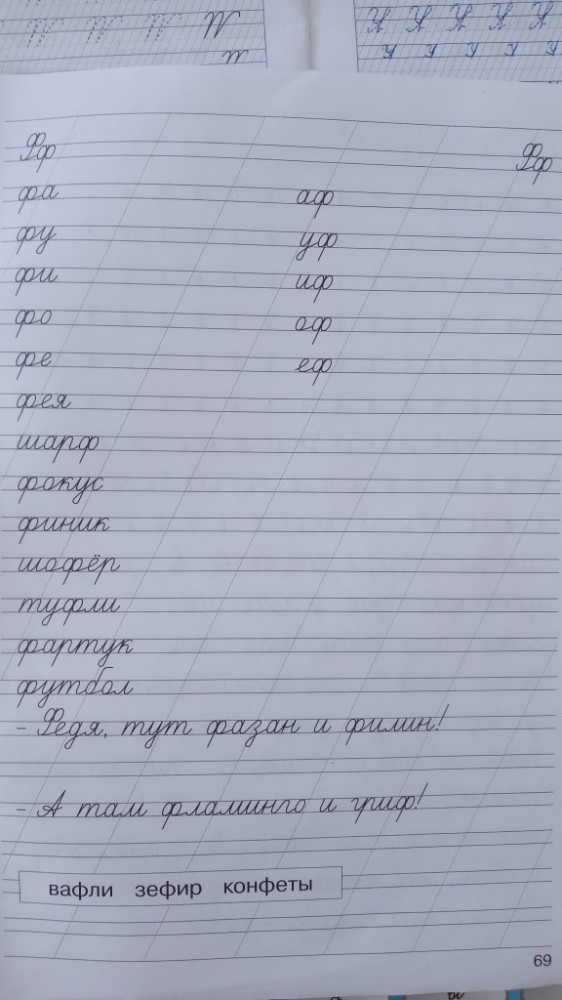 Фф Фф
фа аф
фу уф
фи иф
фо оф
фе еф
фея
шарф
фокус
финик
шофёр
туфли
фартук
футбол
- Федя, тут фазан и филин!
- А там фламинго и гриф!
вафли зефир конфеты
69